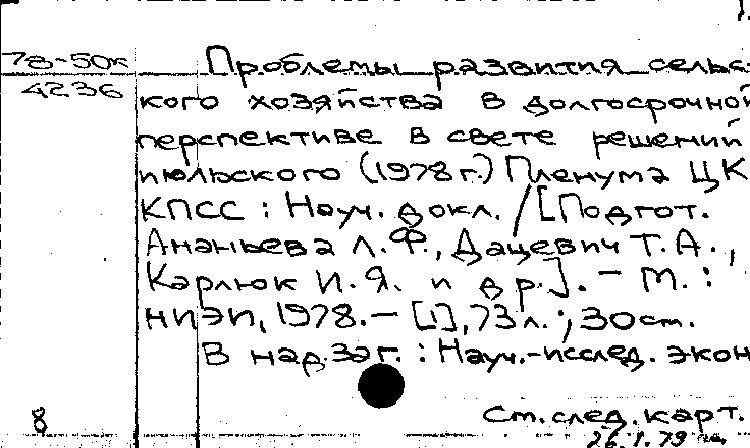 78-50к Проблемы развития сельс-
4236 кого хозяйства в долгосрочной
перспективе в свете решений
июльского (1978 г.) Пленума ЦК
КПСС : Науч. докл. / [Подгот.
Ананьева Л. Ф., Дацевич Т. А.,
Карлюк И. Я. и др.]. – М. :
НИЭИ, 1978. – [1], 73 л. ; 30 см.
В надзаг. : Науч.-исслед. экон
См. след. карт.
8 26.1.79